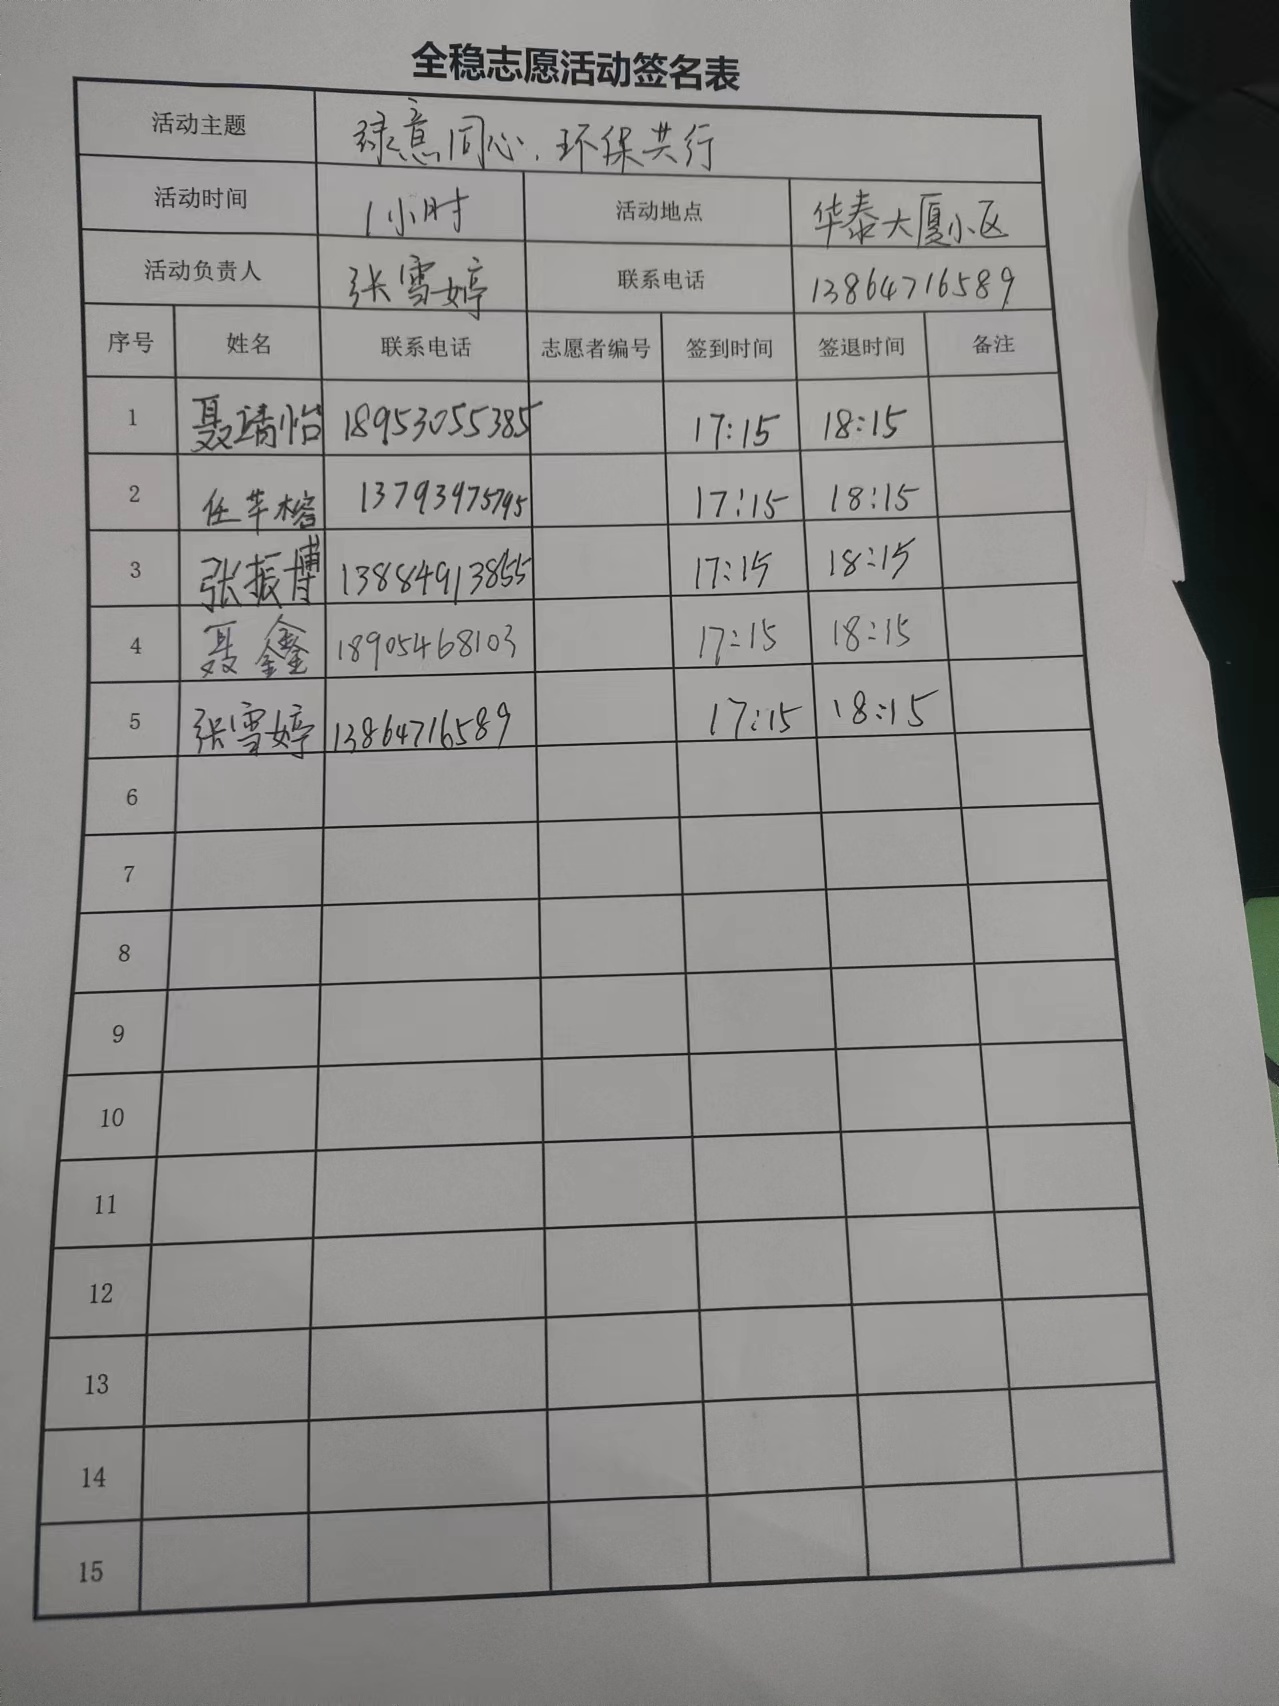 全稳志愿活动签名表
活动主题 绿意同心、环保共行
活动时间 1小时 活动地点 华泰大厦小区
活动负责人 张雪婷 联系电话 13864716589
序号 姓名 联系电话 志愿者编号 签到时间 签退时间 备注
1 聂靖怡 18953055385 17:15 18:15
2 任芊榕 13793975795 17:15 18:15
3 张振博 13884913855 17:15 18:15
4 聂鑫 18905468103 17:15 18:15
5 张雪婷 13864716589 17:15 18:15
6
7
8
9
10
11
12
13
14
15